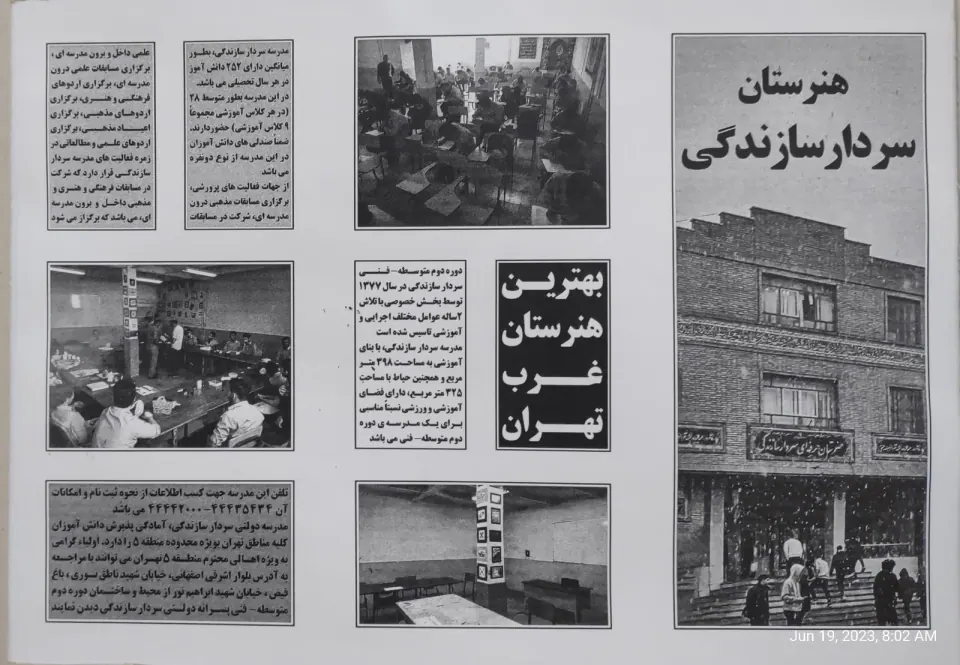 هنرستان
سردار سازندگی
هنرستان حرفه‌ای سردار سازندگی
بهترین
هنرستان
غرب
تهران
دوره دوم متوسطه - فنی
سردار سازندگی در سال ۱۳۷۷
توسط بخش خصوصی با تلاش
۲ساله عوامل مختلف اجرایی و
آموزشی تاسیس شده است
مدرسه سردار سازندگی، با بنای
آموزشی به مساحت ۳۹۸ متر
مربع و همچنین حیاط با مساحت
۳۲۵ متر مربع، دارای فضای
آموزشی و ورزشی نسبتاً مناسبی
برای یک مدرسه ی دوره
دوم متوسطه - فنی می باشد
مدرسه سردار سازندگی، بطور
میانگین دارای ۲۵۲ دانش آموز
در هر سال تحصیلی می باشد.
در این مدرسه بطور متوسط ۲۸
(در هر کلاس آموزشی مجموعاً
۹ کلاس آموزشی) حضوردارند.
ضمناً صندلی های دانش آموزان
در این مدرسه از نوع دونفره
می باشد
از جهات فعالیت های پرورشی،
برگزاری مسابقات مذهبی درون
مدرسه ای، شرکت در مسابقات
علمی داخل و برون مدرسه ای ،
برگزاری مسابقات علمی درون
مدرسه ای، برگزاری اردوهای
فرهنگی و هنری، برگزاری
اردوهای مذهبی، برگزاری
اعیاد مذهبی، برگزاری
اردوهای علمی و مطالعاتی در
زمره فعالیت های مدرسه سردار
سازندگی قرار دارد که شرکت
در مسابقات فرهنگی و هنری و
مذهبی داخل و برون مدرسه
ای، می باشد که برگزار می شود
تلفن این مدرسه جهت کسب اطلاعات از نحوه ثبت نام و امکانات
آن ۴۴۴۳۵۴۳۴-۴۴۴۴۲۰۰۰ می باشد
مدرسه دولتی سردار سازندگی، آمادگی پذیرش دانش آموزان
کلیه مناطق تهران بویژه محدوده منطقه ۵ را دارد. اولیاء گرامی
به ویژه اهالی محترم منطقه ۵ تهران می توانند با مراجعه
به آدرس بلوار اشرفی اصفهانی، خیابان شهید ناطق نوری ، باغ
فیض ، خیابان شهید ابراهیم نور از محیط و ساختمان دوره دوم
متوسطه - فنی پسرانه دولتی سردار سازندگی دیدن نمایند
Jun 19, 2023, 8:02 AM